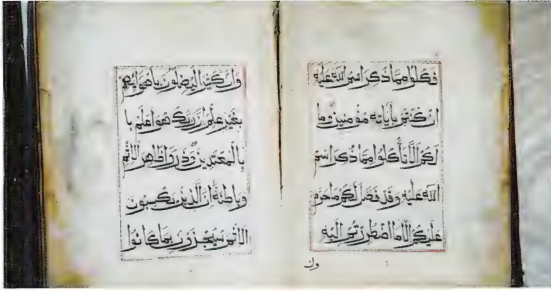 فكلوا مما ذكر اسم الله عليه
ان كنتم باياته مؤمنين وما
لكم الا تأكلوا مما ذكر اسم
الله عليه وقد فصل لكم ما حرم
عليكم الا ما اضطررتم اليه
وان
وان كثيرا ليضلون باهوائهم
بغير علم ان ربك هو اعلم با
بالمعتدين وذروا ظاهر الاثم
وباطنه ان الذين يكسبون
الاثم سيجزون بما كانوا